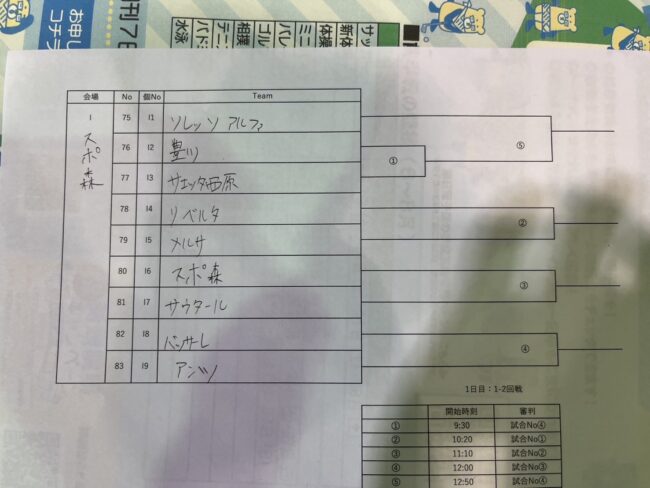 お申し
コチラ
刊7
サッ
新体
体操
ミニ
バレ
ゴル
相撲
テニ
バド
水泳
会場 No 個No Team
I 75 I1 ソレッソ アルファ
スポ森
76 I2 豊川
①
⑤
77 I3 サエッタ西原
78 I4 リベルタ
②
79 I5 メルサ
80 I6 スポ森
③
81 I7 サウタール
82 I8 バンサーレ
④
83 I9
1日目：1-2回戦
開始時刻 審判
① 9:30 試合No④
② 10:20 試合No①
③ 11:10 試合No②
④ 12:00 試合No③
⑤ 12:50 試合No④